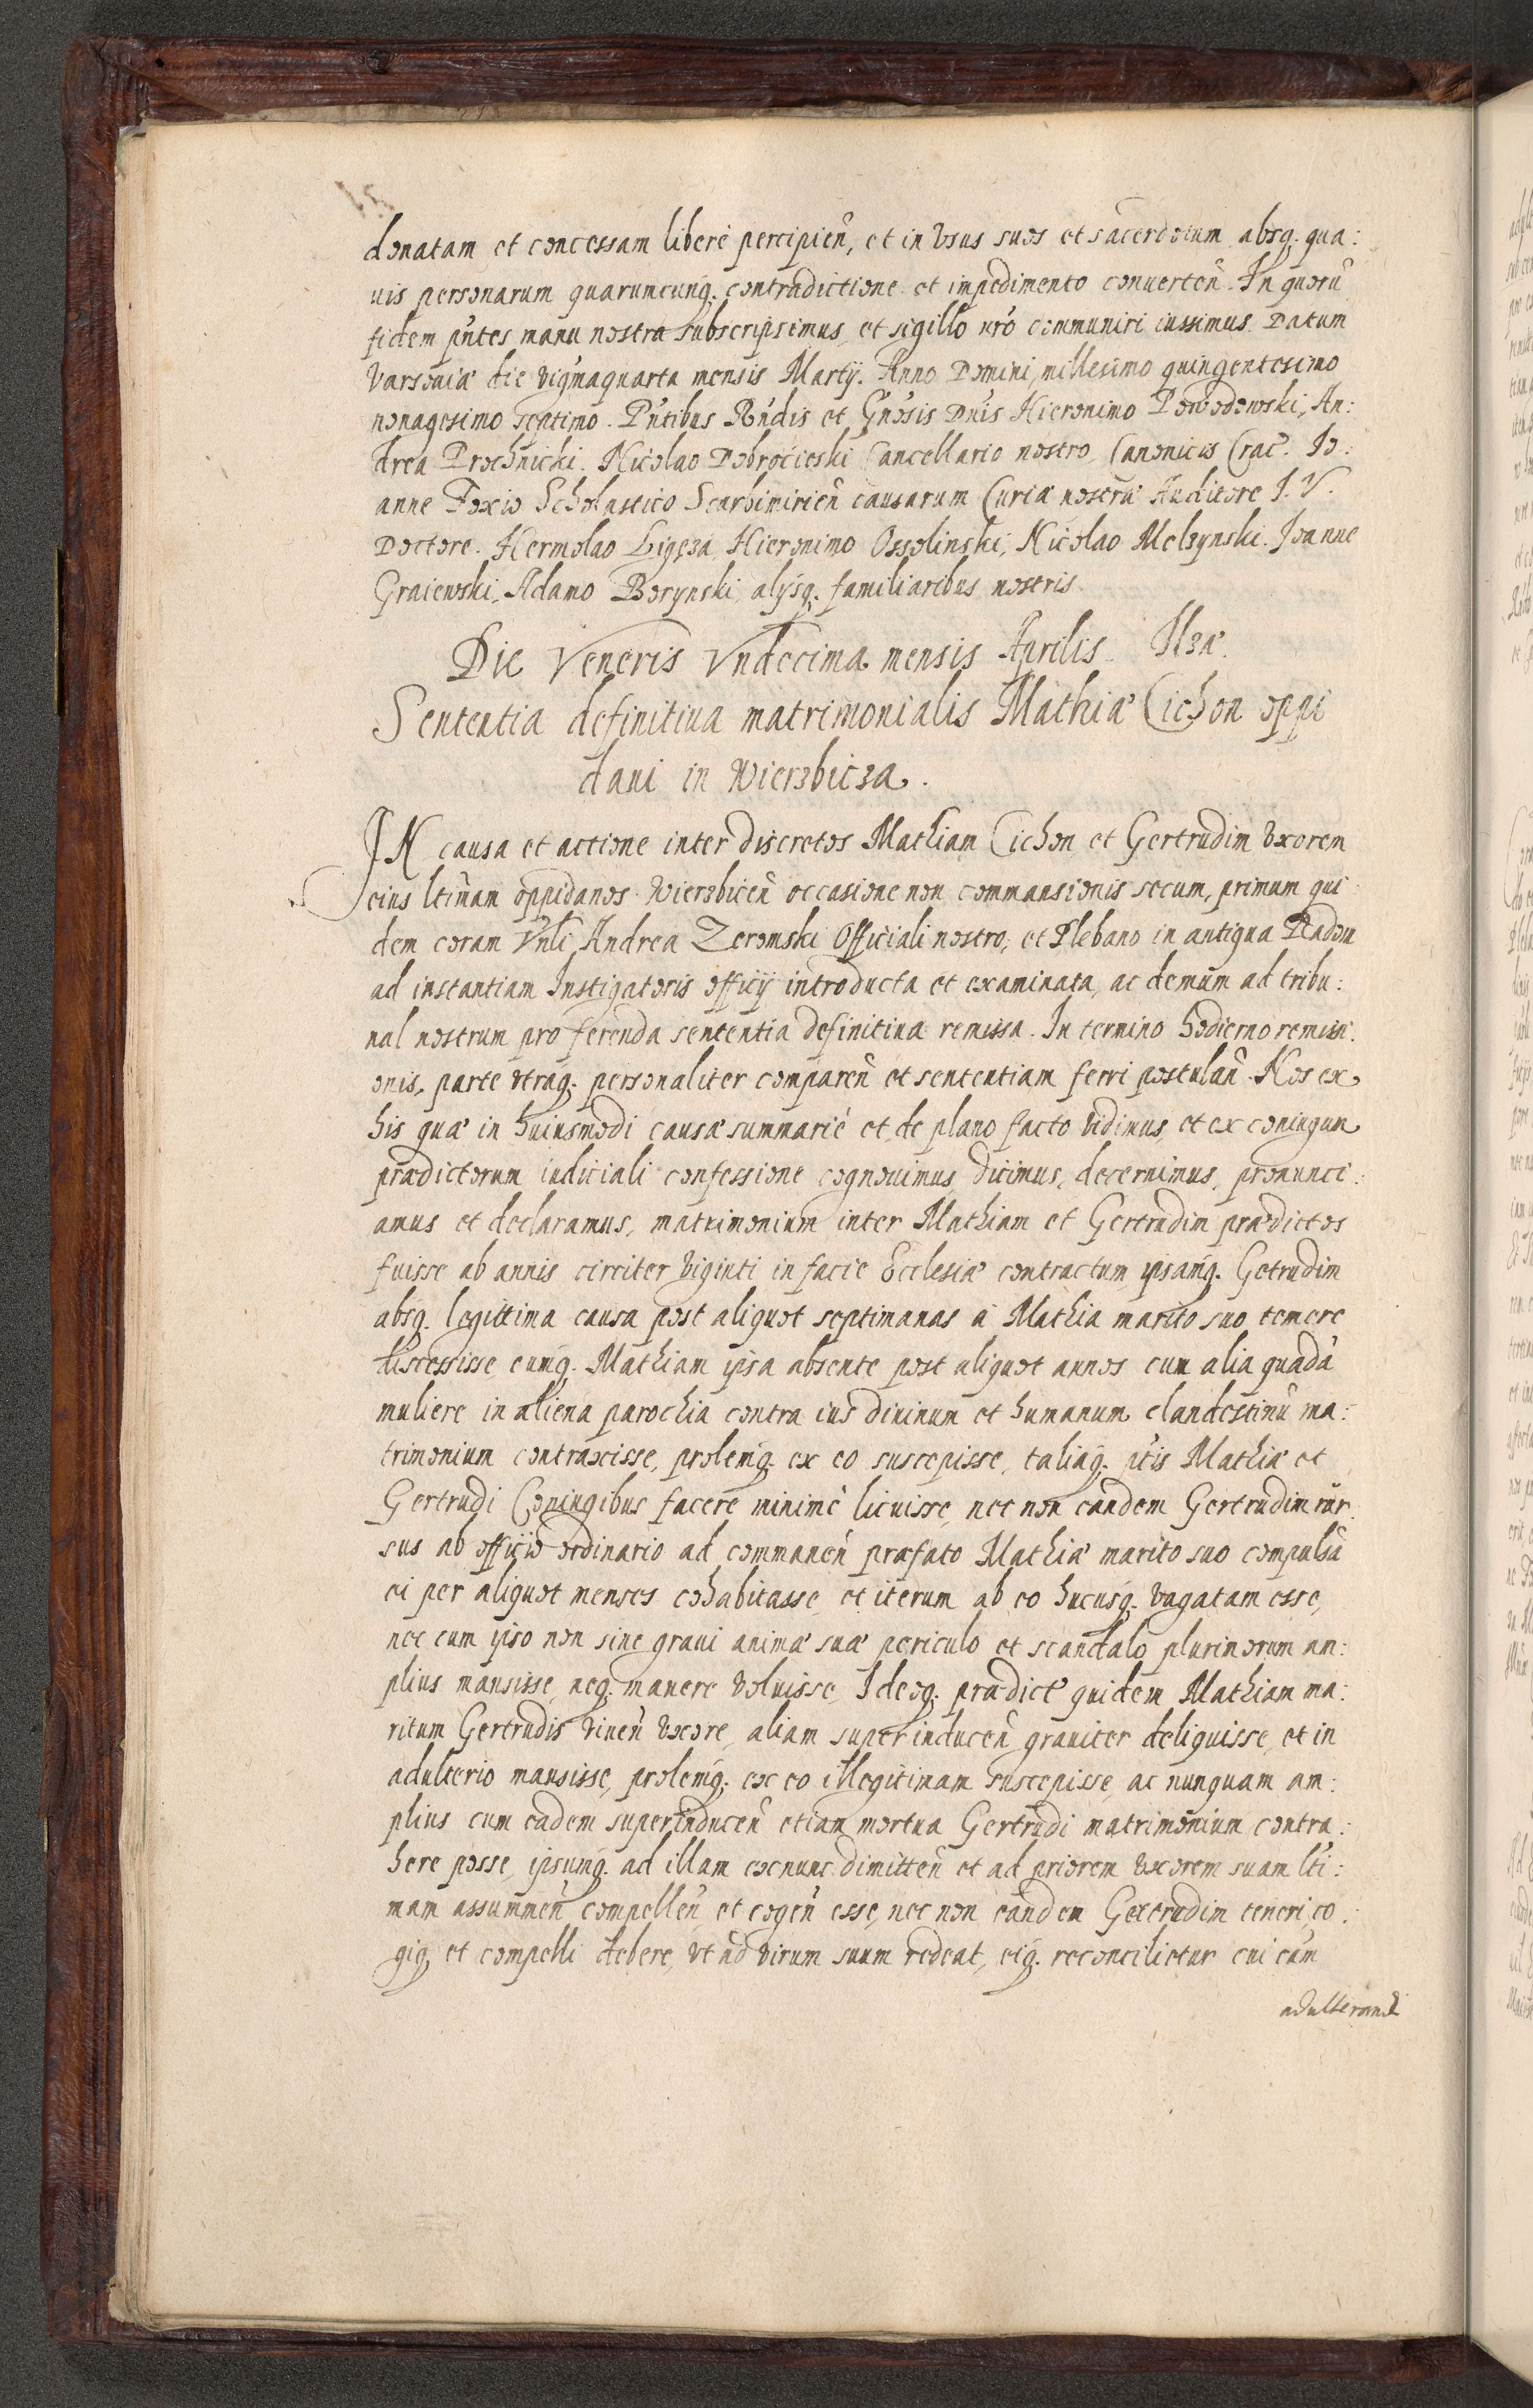 donatam et concessam liberè percipień, et in Usus suos et sacerdotum absq. qua:
uis personarum quarumcunq. contradictione et impedimento conuerteń. In quorũ
fidem pñtes manu nostra subscripsimus, et sigillo nrõ communiri iussimus. Datum
Varsouiæ die vigmaquarta mensis Martij. Anno Domini, millesimo quingentesimo
nonagesimo septimo. Pñtibus Rñdis et Gñosis Dñis Hieronimo Powodowski, An:
drea Prochnicki. Nicolao Dobrocieski Cancellario nostro, Canonicis Crac̃. Io:
anne Foxio Scholastico Scarbimirień causarum Curiæ nostræ Auditore I. V.
Doctore. Hermolao Ligęza, Hieronimo Ossolinski, Nicolao Melzynski. Joanne
Graiewski, Adamo Borynski, alijsq. familiaribus nostris.
Die Veneris Vndecima mensis Aprilis. Ilzæ.
Sententia definitiua matrimonialis Mathiæ Cichon oppi
dani in Wierzbicza.
IN causa et actione inter discretos Mathiam Cichon et Gertrudim Vxorem
eius ltimam oppidanos Wierzbiceń occasione non commansionis secum, primum qui
dem coram Vnli Andrea Zeromski Officiali nostro, et Plebano in antiqua Radom
ad instantiam Instigatoris officij introducta et examinata, ac demùm ad tribu:
nal nostrum pro ferenda sententia definitiua remissa. In termino hodierno remissi:
onis, parte vtraq. personaliter compareń et sententiam ferri postulań. Nos ex
his quæ in huiusmodi causæ summariè et de plano facto vidimus, et ex coniugum
prædictorum iudiciali confessione cognouimus, dicimus, decernimus, pronunci:
amus et declaramus, matrimonium inter Mathiam et Gertrudim prædictos
fuisse ab annis circiter viginti in facie Ecclesiæ contractum, ipsamq. Getrudim
absq. legittima causa post aliquot septimanas à Mathia marito suo temere
discessisse, eumq. Mathiam ipsa absente post aliquot annos cum alia quadã
muliere in aliena parochia contra ius diuinum et humanum clandestinũ ma:
trimonium contraxisse, prolemq. ex eo suscepisse, taliaq. ptis Mathiæ et
Gertrudi Coniugibus facere minimè licuisse, nec non eandem Gertrudim rur
sus ab officio ordinario ad commaneń præfato Mathiæ marito suo compulsã
ei per aliquot menses cohabitasse, et iterum ab eo hucusq. vagatam esse,
nec cum ipso non sine graui animæ suæ periculo et scandalo plurimorum am:
plius mansisse, neq. manere voluisse, Ideoq. prædict quidem Mathiam ma:
ritum Gertrudis viueń vxore, aliam superinduceń grauiter deliquisse, et in
adulterio mansisse, prolemq. ex eo illegitimam suscepisse, ac nunquam am:
plius cum eadem superinduceń etiam mortua Gertrudi matrimonium contra:
here posse, ipsumq. ad illam exnunc dimitteń et ad priorem vxorem suam lti:
mam assummeń compelleń, et cogeń esse, nec non eandem Gertrudim teneri, co:
giq. et compelli debere, vt ad virum suum redeat, eiq. reconcilietur cui eum
adulterand